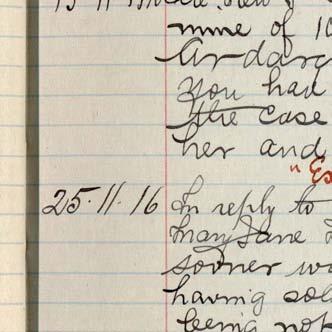 mine of 10
Ardarg
you had
the case
her and
"Es
25.11.16 In reply to
Mary Jane
sooner wa
having sol
being not